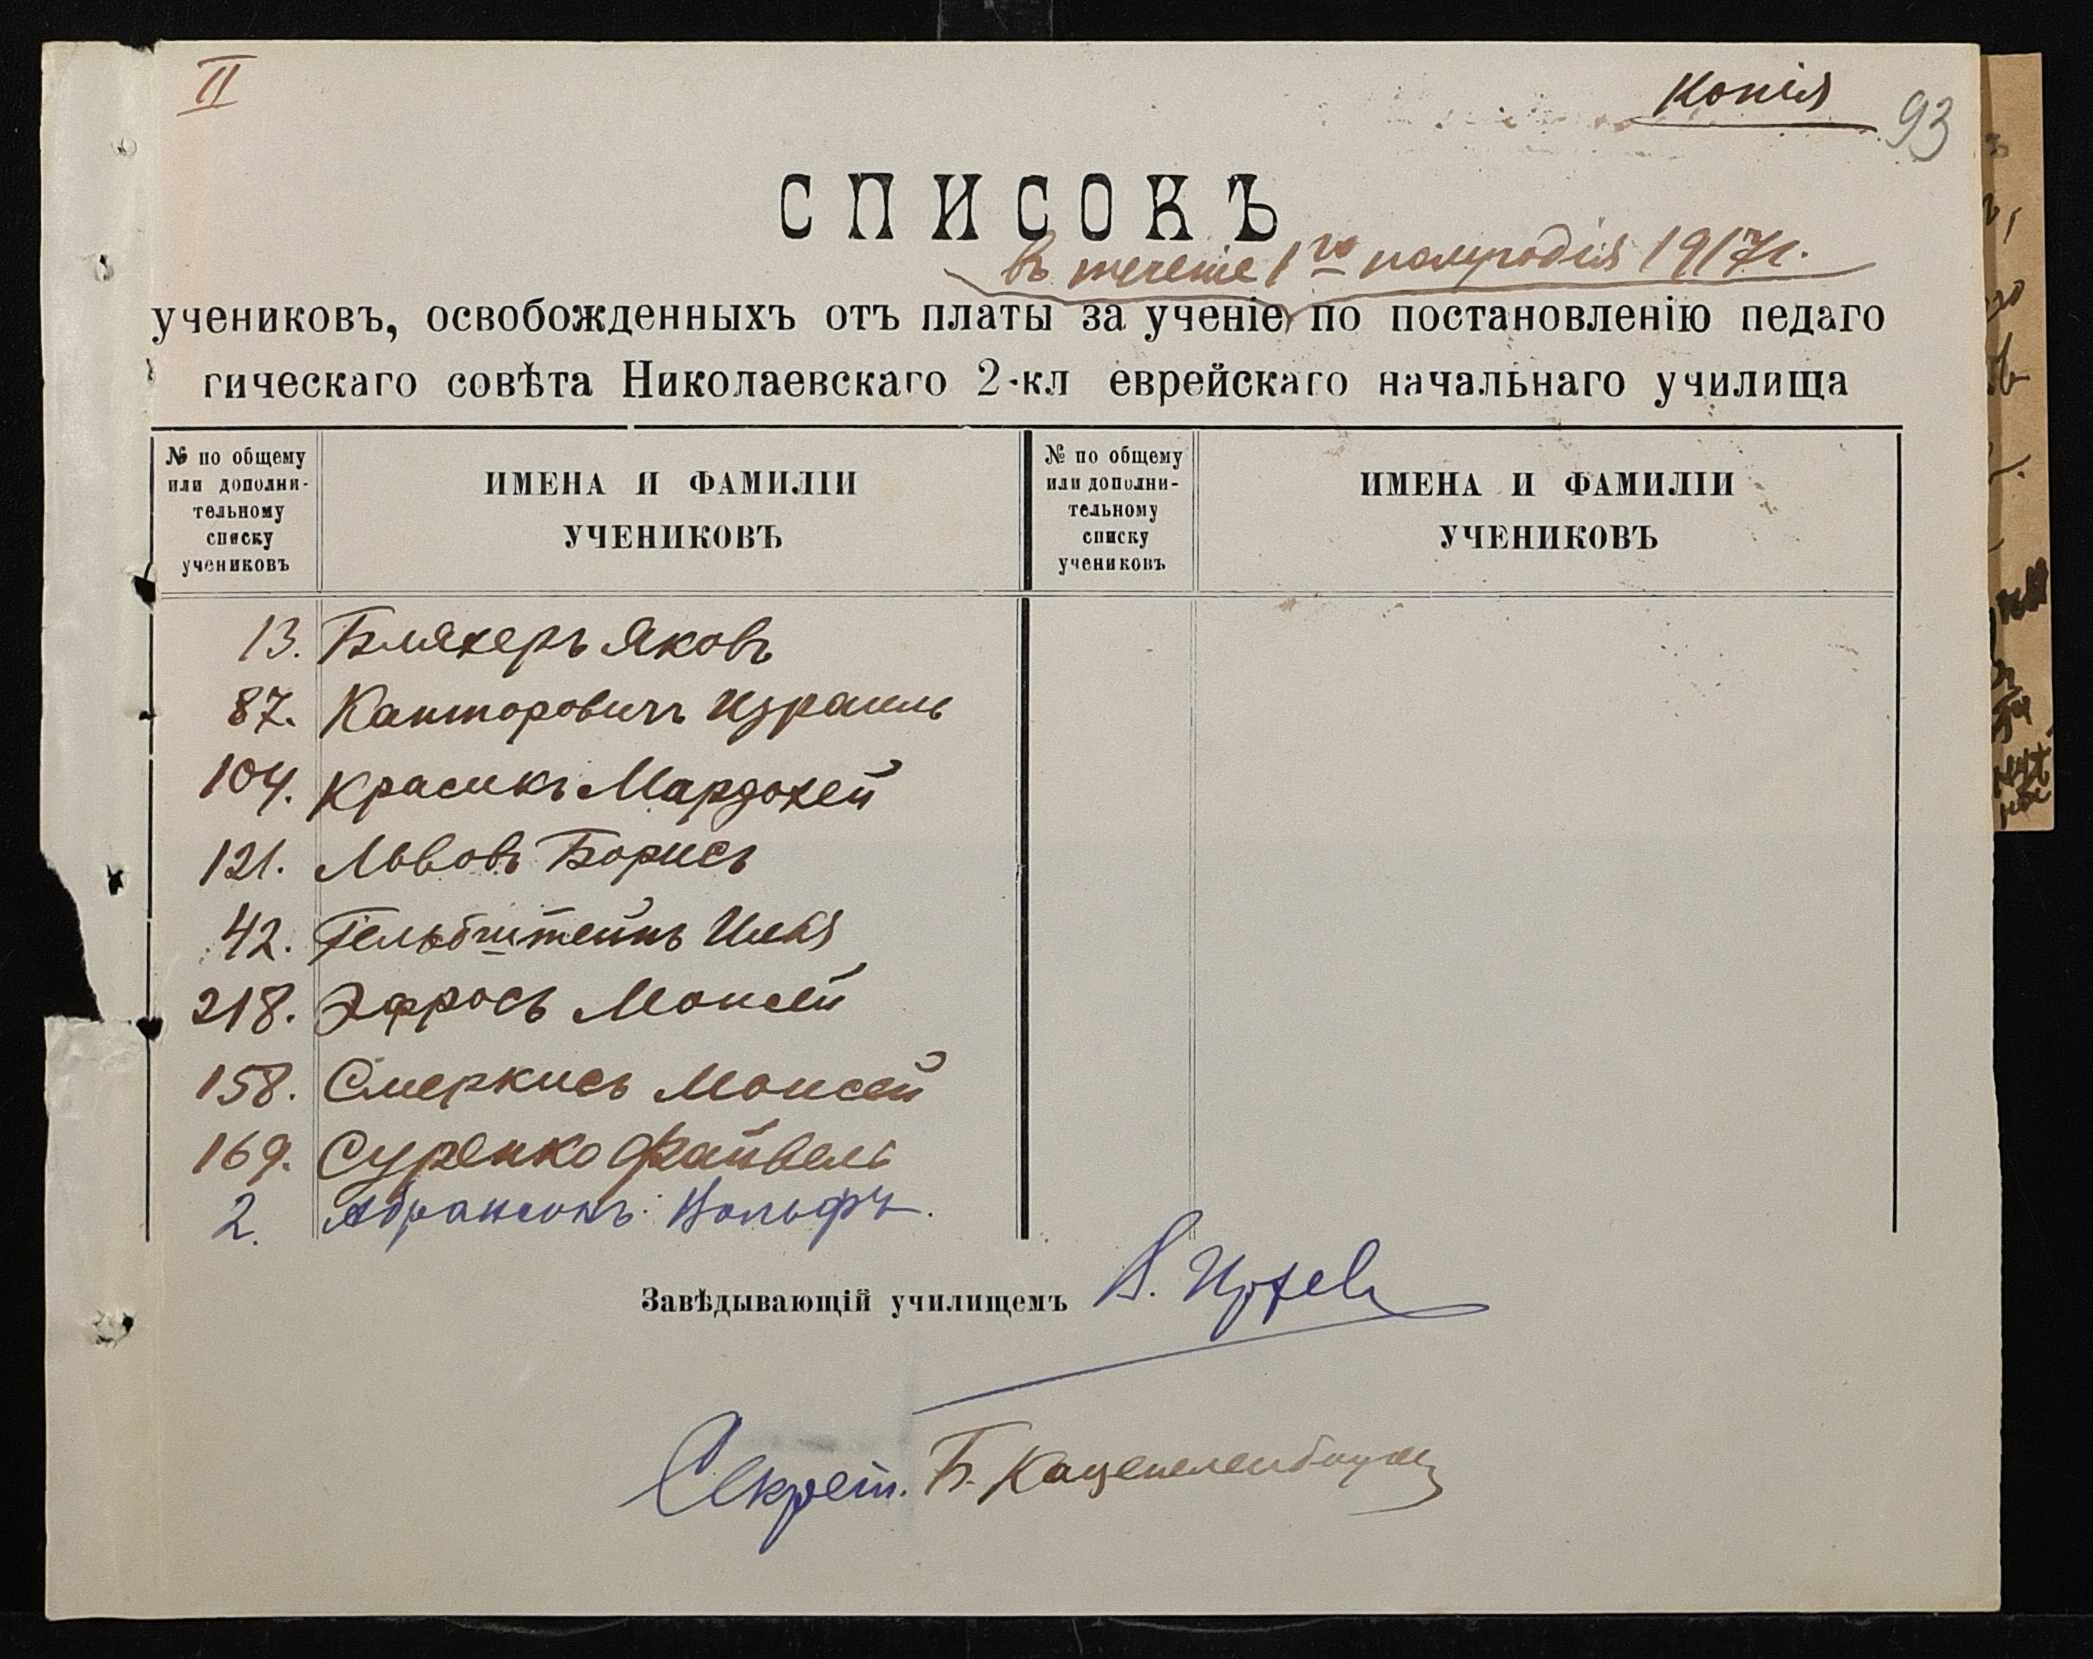 II
Копія
93
СПИСОКЪ
въ теченіе 1го полугодія 1917 г.
учениковъ, освобожденныхъ отъ платы за ученіе, по постановленію педаго
гическаго совѣта Николаевскаго 2-кл еврейскаго начальнаго училища
№ по общему или дополни- тельному списку учениковъ
ИМЕНА И ФАМИЛІИ УЧЕНИКОВЪ
№ по общему или дополни- тельному списку учениковъ
ИМЕНА И ФАМИЛІИ УЧЕНИКОВЪ
13. Бляхеръ Яковъ
87. Канторовичъ Израиль
104. Красикъ Мардохей
121. Львовъ Борисъ
42. Гельбштейнъ Илья
218. Эфросъ Моисей
158. Смеркисъ Моисей
169. Суренко Файвель
2. Абрамсонъ Вольфъ.
Завѣдывающій училищемъ
Секрет. Б. Каценеленбаумъ